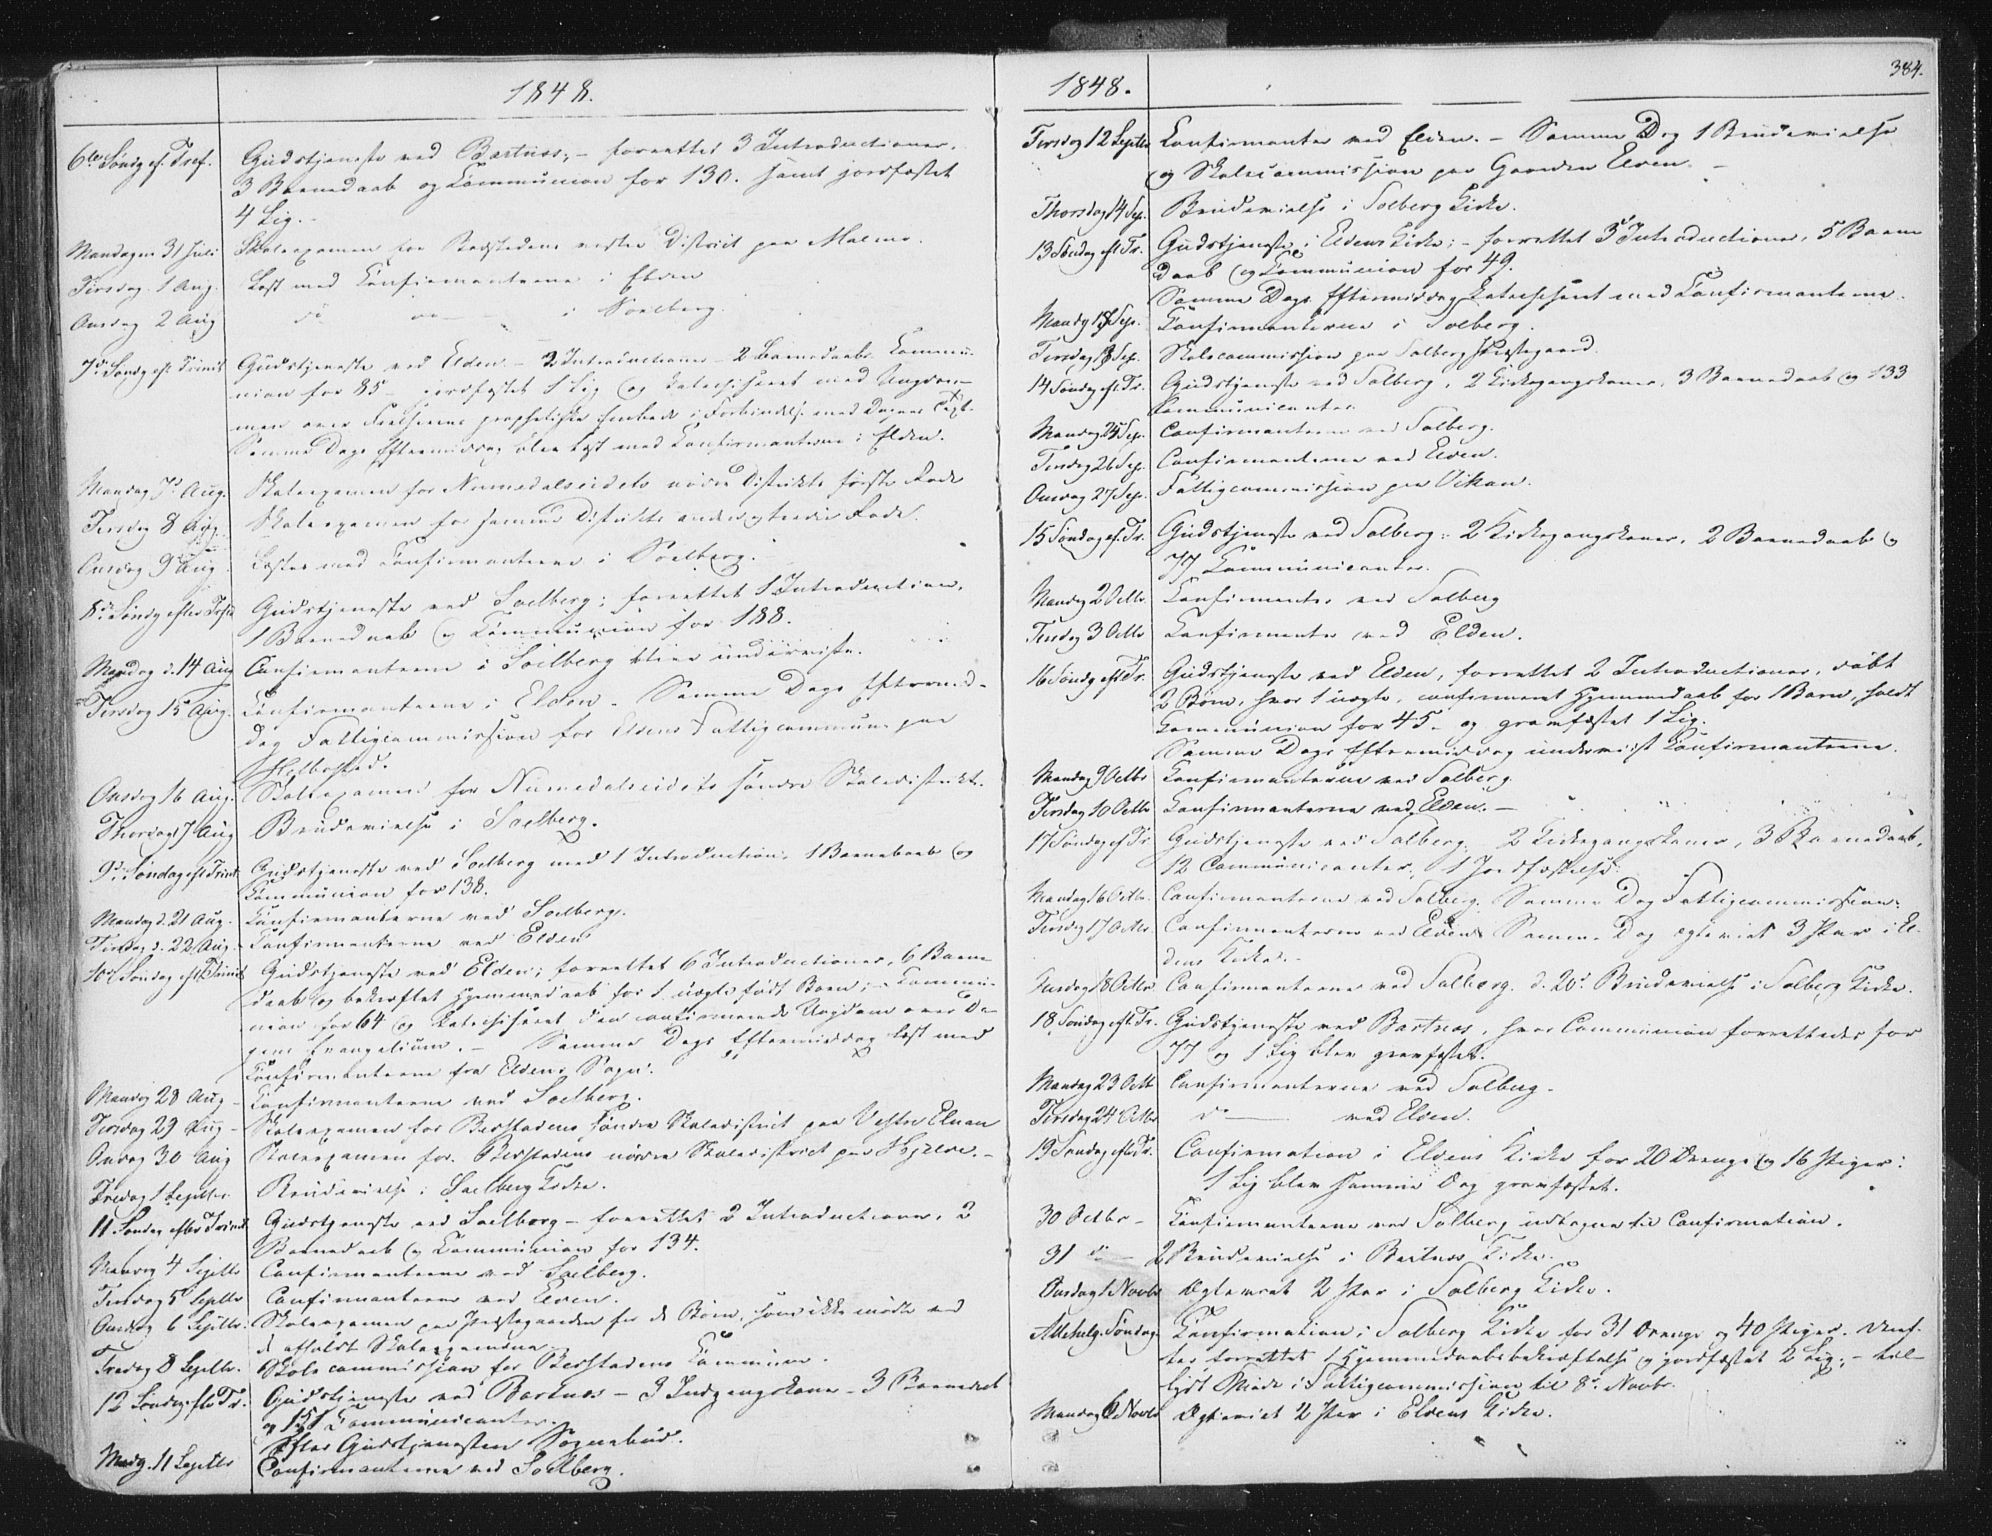 1848.
6te Søndg ef. Tref. Gudstjeneste ved Bartnæs; – forrettet 3 Introductioner,
3 Barnedaab og Communion for 130. samt jordfæstet
4 Lig. –
Mandagen 31 Juli Skoleexamen for Bedstadens vestre District paa Malmo.
Tirsdag 1 Aug. Læst med Confirmanterne i Elden
Onsdag 2 Aug do i Soelberg.
7de Søndg eft. Trinit Gudstjeneste ved Elden. – 2 Introductioner – 2 Barnedaab. Commu-
nion for 85 – jordfæstet 1 Lig og katechiseret med Ungdom-
men over Frelserens prophetiske Embede i Forbindelse med Dagens Text.
Samme Dags Eftermiddag blev læst med Confirmanterne i Elden.
Mandag 7de Aug. Skoleexamen for Numedalseidets nordre Districts første Rode
Tirsdag 8 Aug. Skoleexamen for samme Districts anden og tredie Rode.
Onsdag 9 Aug. Læstes med Confirmanterne i Soelberg.
8de Søndg efter Trefo Gudstjeneste ved Soelberg; forrettet 1 Introduction,
1 Barnedaab og Communion for 188.
Mandag d. 14 Aug Confirmanterne i Soelberg blive underviste.
Tirsdag 15 Aug. Confirmanterne i Elden – Samme Dags Eftermid-
dag Fattigcommission for Eldens Fattigcommune paa
Helbostad.
Onsdag 16 Aug. Skoleexamen for Numedalseidets søndre Skoledistrikt.
Thorsdag 17 Aug Brudevielse i Soelberg.
9de Søndag eft Trinit Gudstjeneste ved Soelberg med 1 Introduction, 1 Barnedaab og
Communion for 138.
Mandag d. 21 Aug. Confirmanterne ved Soelberg.
Tirsdag d. 22 Aug. – Confirmanterne ved Elden
10de Søndag eft Trinit Gudstjeneste ved Elden; forrettet 6 Introductioner, 6 Barne-
daab og bekræftet Hjemmedaab for 1 uægte født Barn; – Commu-
nion for 64 og katechiseret den confirmerede Ungdom over Da-
gens Evangelium. – Samme Dags Eftermiddag læst med
Confirmanterne fra Eldens Sogn.
Mandag 28 Aug – Confirmanterne ved Soelberg.
Tirsdag 29 Aug – Skoleexamen for Bedstadens søndre Skoledistrict paa Vestre Elnan
Onsdag 30 Aug Skoleexamen for Bedstadens nordre Skoledistrict paa Hjelde. –
Fredag 1 Septbr. Brudevielse i Soelberg Kirke.
11 Søndag efter Trinit Gudstjeneste ved Soelberg – forrettet 2 Introductioner, 2
Barnedaab og Communion for 134.
Mandag 4 Septbr Confirmanterne ved Soelberg.
Tirsdag 5 Septbr Confirmanterne ved Elden.
Onsdag 6 Septbr. Skoleexamen paa Præstegaarden for de Børn, som ikke mødte ved
de afholdt Skoleexamina.
Fredag 8 Septbr. Skolecommission for Bedstadens Commune.
12 Søndag efter Tr. Gudstjeneste ved Bartnæs – 3 Indgangskoner – 3 Barnedaab
og 151 Communicanter.
Efter Gudstjenesten Sognebud.
Mandg. 11 Septbr Confirmanterne ved Soelberg.
384.
1848.
Tirsdag 12 Septbr Confirmanter ved Elden. – Samme Dag 1 Brudevielse
og Skolecommission paa Gaarden Elden. –
Thorsdag 14 Sep. Brudevielse i Solberg Kirke.
13 Søndag eft. Tr. Gudstjeneste i Eldens Kirke; – forrettet 3 Introductioner, 5 Barne
daab og Communion for 49.
Samme Dags Eftermiddag katechiseret med Confirmanterne.
Mandg 18 Sep. Confirmanterne i Solberg.
Tirsdag 19 Sep. Skolecommission paa Solberg Præstegaard.
14 Søndag eft. Tr. Gudstjeneste ved Solberg, 2 Kirkegangskoner, 3 Barnedaab og 133
Communicanter.
Mandag 25 Sep. Confirmanterne ved Solberg.
Tirsdag 26 Sep. Confirmanterne ved Elden.
Onsdag 27 Sep. Fattigcommission paa Vikan.
15 Søndag ef. Tr. Gudstjeneste ved Solberg: 2 Kirkegangskoner, 2 Barnedaab og
77 Communicanter.
Mandag 2 Octbr. Confirmanter ved Solberg
Tirsdag 3 Octbr. Confirmanter ved Elden.
16 Søndg eft Tr. Gudstjeneste ved Elden, forrettet 2 Introductioner, døbt
2 Børn, hvor 1 uægte, confirmeret Hjemmedaab for 1 Barn, holdt
Communion for 45 – og gravfæstet 1 Lig.
Samme Dags Eftermiddag underviist Confirmanterne.
Mandag 9 Octbr Confirmanterne ved Solberg.
Tirsdag 10 Octbr Confirmanterne ved Elden. –
17 Søndag ef Tr Gudstjeneste ved Solberg. 2 Kirkegangskoner, 3 Barnedaab,
12 Communicanter, 1 Jordfæstelse.
Mandag 16 Octbr. Confirmanterne ved Solberg. Samme Dag Fattigcommission.
Tirsdag 17 Octbr. Confirmanterne ved Elden. Samme Dag egteviet 3 Par i El-
dens Kirke. –
Onsdag 18 Octbr Confirmanterne ved Solberg. d. 20de Brudevielse i Solberg Kirke.
18 Søndag eft. Tr. Gudstjeneste ved Bartnæs, hvor Communion forrettedes for
77 og 1 Lig blev gravfæstet.
Mandag 23 Octb Confirmanterne ved Solberg.
Tirsdag 24 Octbr do ved Elden.
19 Søndag eft Tr. Confirmation i Eldens Kirke for 20 Drenge og 16 Piger:
1 Lig blev samme Dag gravfæstet.
30 Octbr – Confirmanterne ved Solberg udtagne til Confirmation.
31 do – 2 Brudevielse i Bartnæs Kirke.
Onsdag 1 Novbr Egteviet 2 Par i Solberg Kirke.
Allehelg. Søndag Confirmation i Solberg Kirke for 31 Drenge og 40 Piger. Der ef-
ter forrettet 1 Hjemmedaabsbekræftelse og jordfæstet 2 Lig; – til-
lyst Møde i Fattigcommissionen til 8de Novbr.
Mandag 6 Novbr Egteviet 2 Par i Eldens Kirke.